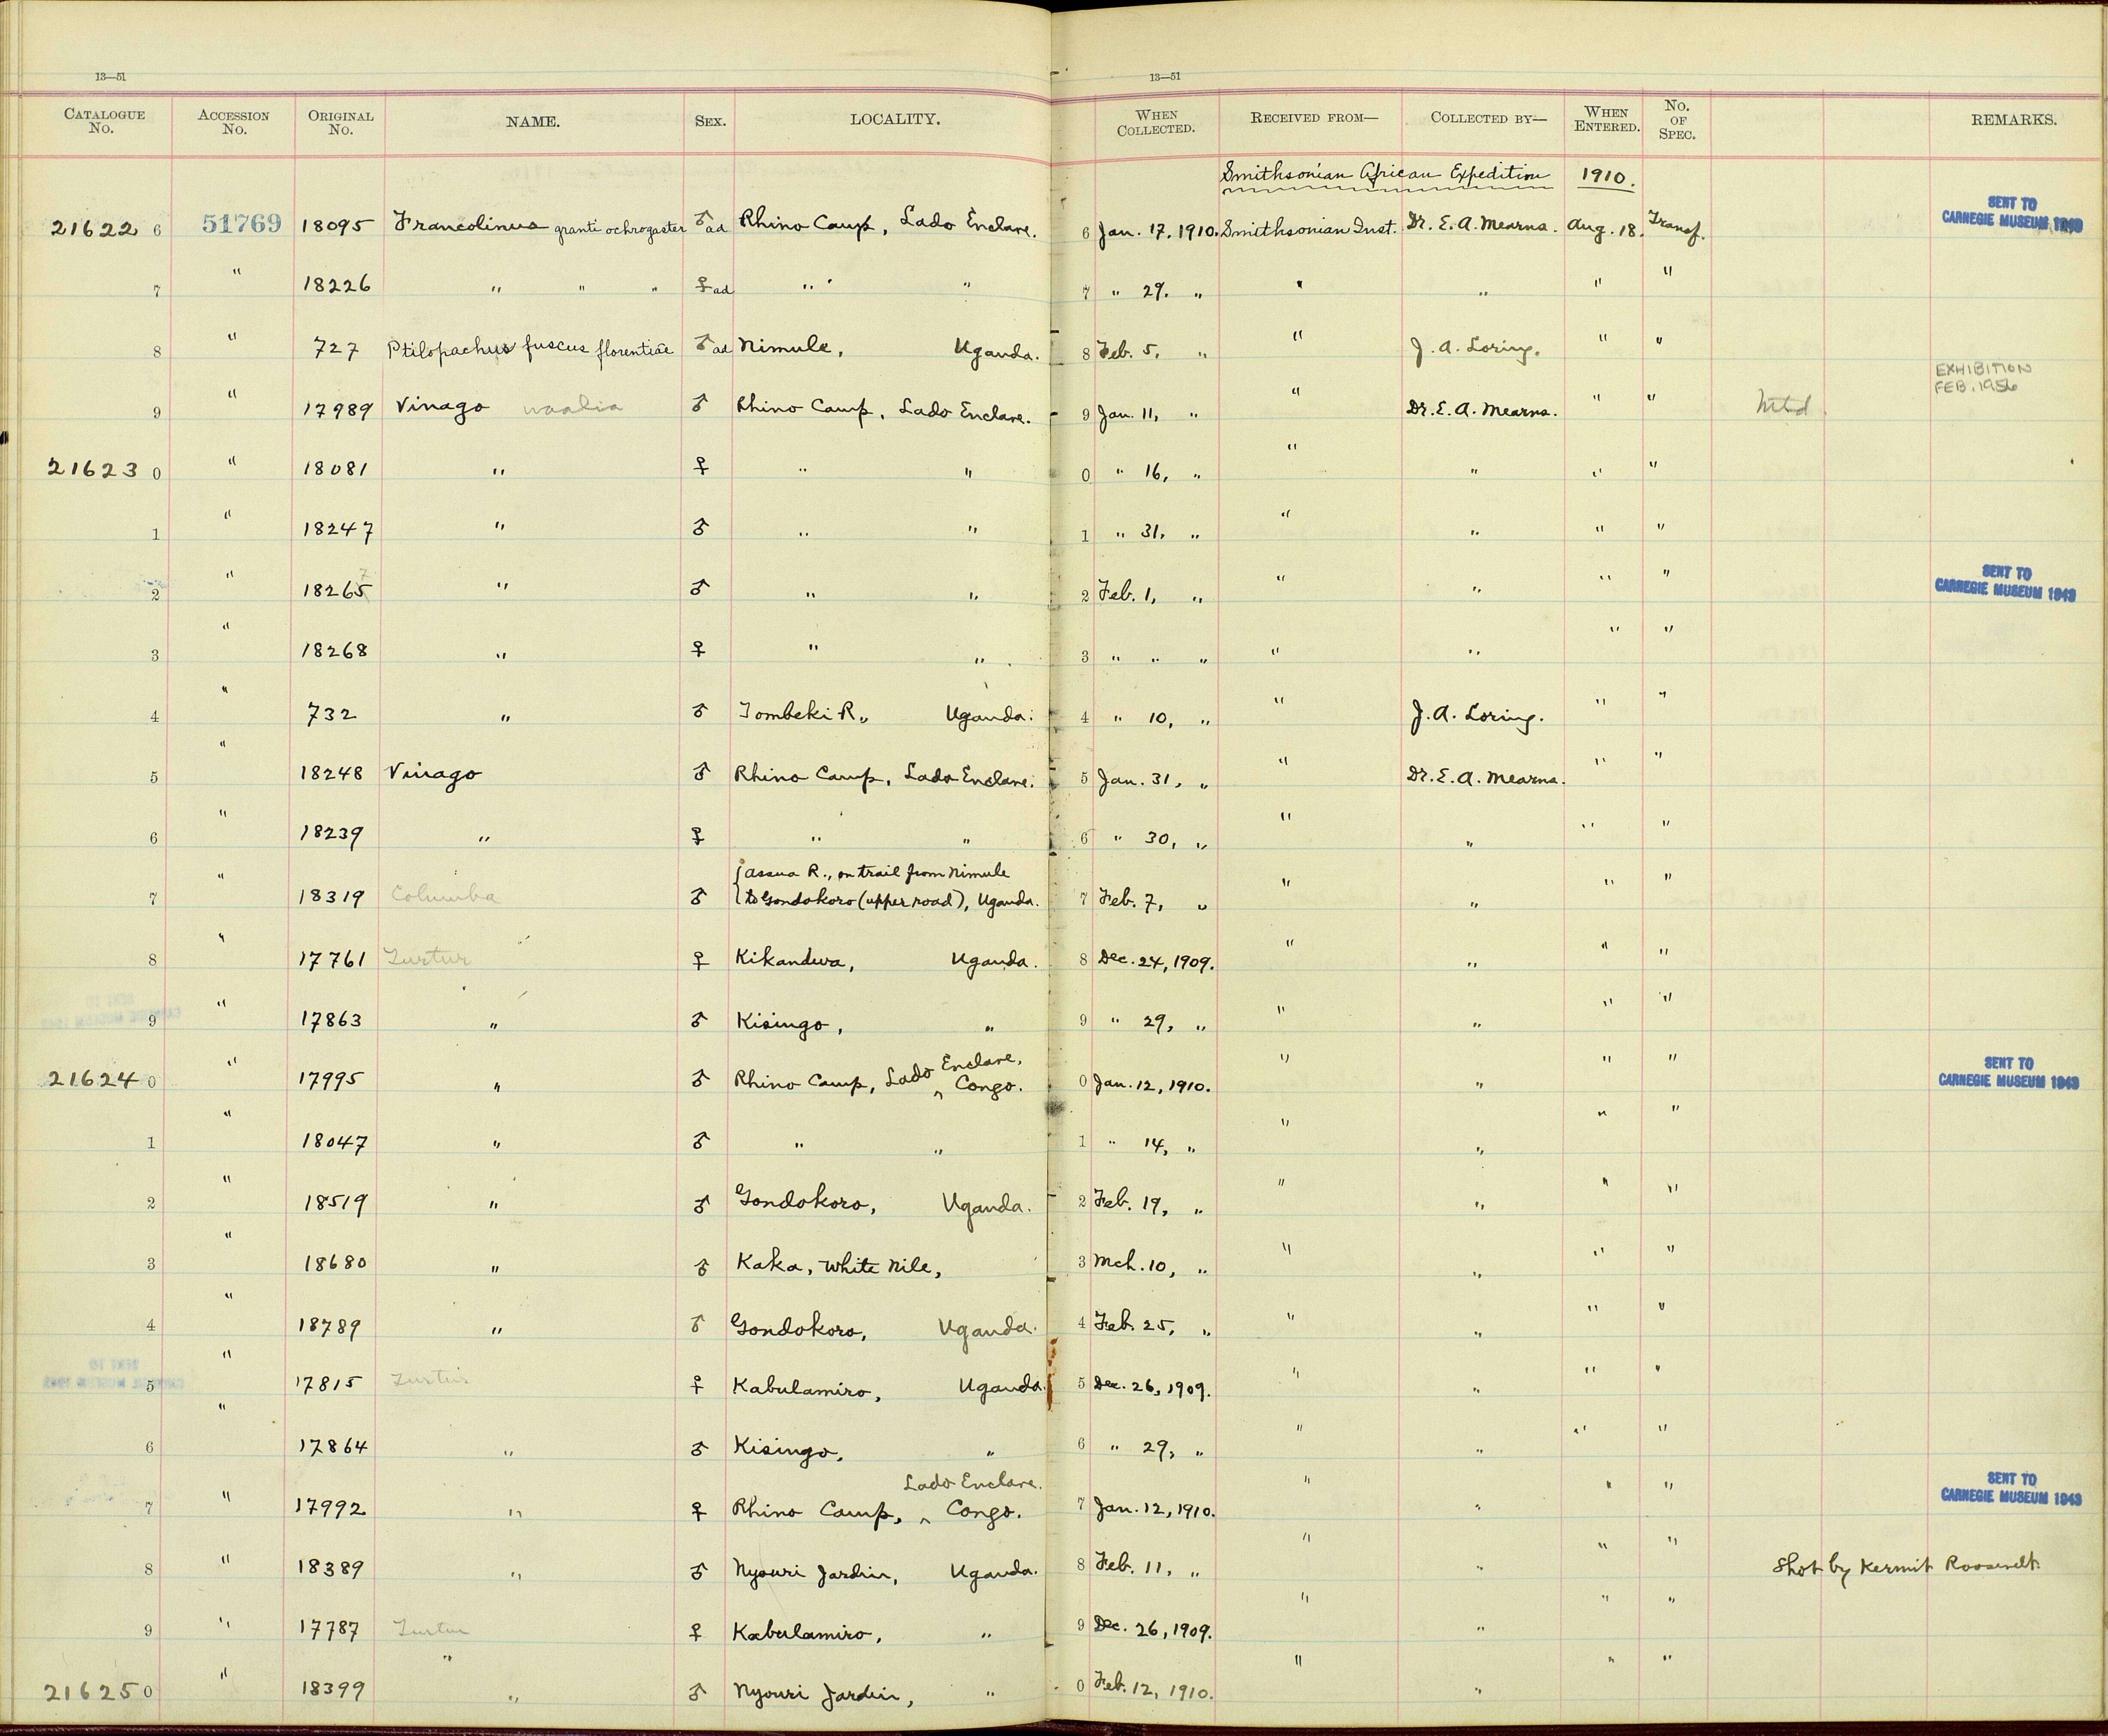 13—51
13—51
CATALOGUE No. ACCESSION No. ORIGINAL No. NAME. SEX. LOCALITY. WHEN COLLECTED. RECEIVED FROM— COLLECTED BY— WHEN ENTERED. No. OF SPEC. REMARKS.
Smithsonian African Expedition 1910.
21622 6 51769 18095 Francolinus granti ochrogaster ♂ad Rhino Camp, Lado Enclave. 6 Jan. 17, 1910. Smithsonian Inst. Dr. E. A. Mearns. Aug. 18. Transf. SENT TO CARNEGIE MUSEUM 1949
7 " 18226 " " " ♀ad " " 7 " 29. " " " " "
8 " 727 Ptilopachus fuscus florentiae ♂ad Nimule, Uganda. 8 Feb. 5, " " J. A. Loring. " "
9 " 17989 Vinago waalia ♂ Rhino Camp, Lado Enclave. 9 Jan. 11, " " Dr. E. A. Mearns. " " Mtd. EXHIBITION FEB. 1956
21623 0 " 18081 " ♀ " " 0 " 16, " " " " "
1 " 18247 " ♂ " " 1 " 31, " " " " "
2 " 18265 7 " ♂ " " 2 Feb. 1, " " " " " SENT TO CARNEGIE MUSEUM 1949
3 " 18268 " ♀ " " 3 " " " " " " "
4 " 732 " ♂ Tombeki R., Uganda. 4 " 10, " " J. A. Loring. " "
5 " 18248 Vinago ♂ Rhino Camp, Lado Enclave. 5 Jan. 31, " " Dr. E. A. Mearns. " "
6 " 18239 " ♀ " " 6 " 30, " " " " "
7 " 18319 Columba ♂ {Assua R., on trail from Nimule to Gondokoro (upper road), Uganda. 7 Feb. 7, " " " " "
8 " 17761 Turtur ♀ Kikandwa, Uganda. 8 Dec. 24, 1909. " " " "
9 " 17863 " ♂ Kisingo, " 9 " 29, " " " " "
21624 0 " 17995 " ♂ Rhino Camp, Lado Enclave, ^ Congo. 0 Jan. 12, 1910. " " " " SENT TO CARNEGIE MUSEUM 1949
1 " 18047 " ♂ " " 1 " 14, " " " " "
2 " 18519 " ♂ Gondokoro, Uganda. 2 Feb. 19, " " " " "
3 " 18680 " ♂ Kaka, White Nile, 3 Mch. 10, " " " " "
4 " 18789 " ♂ Gondokoro, Uganda. 4 Feb. 25, " " " " "
5 " 17815 Turtur ♀ Kabulamiro, Uganda. 5 Dec. 26, 1909. " " " "
6 " 17864 " ♂ Kisingo, " 6 " 29, " " " " "
7 " 17992 " ♀ Rhino Camp, ^ Lado Enclave. Congo. 7 Jan. 12, 1910. " " " " SENT TO CARNEGIE MUSEUM 1949
8 " 18389 " ♂ Nyouri Jardin, Uganda. 8 Feb. 11, " " " " " Shot by Kermit Roosevelt.
9 " 17787 Turtur ♀ Kabulamiro, " 9 Dec. 26, 1909. " " " "
21625 0 " 18399 " ♂ Nyouri Jardin, " 0 Feb. 12, 1910. " " " "